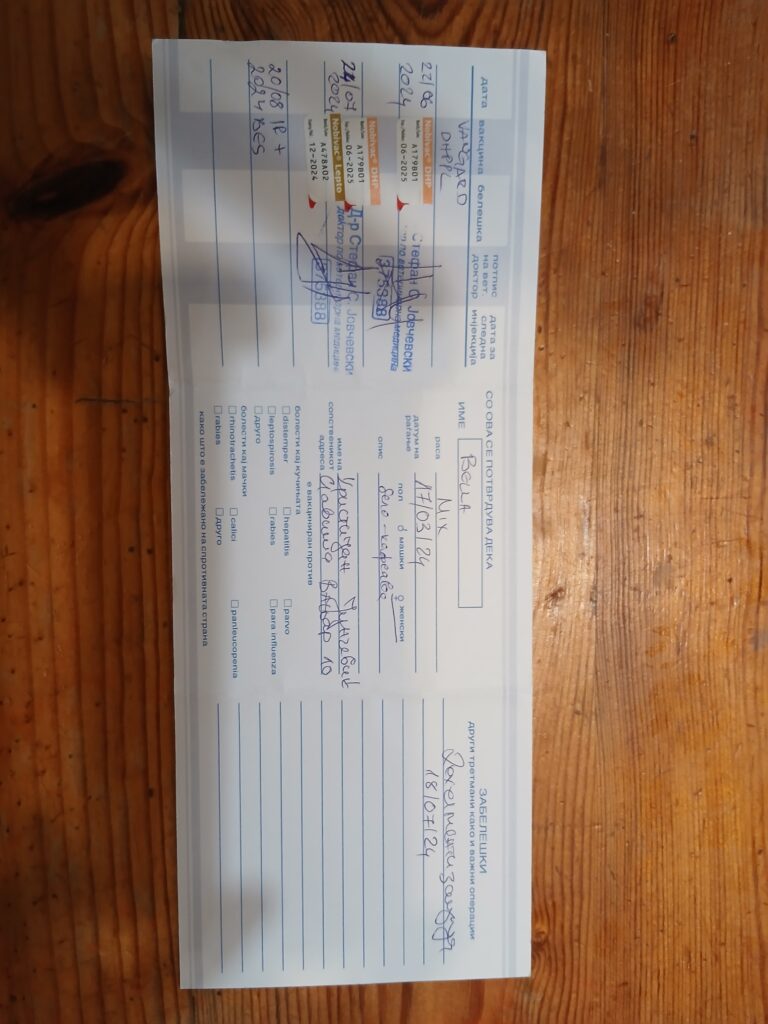 дата вакцина белешка
потпис
на вет.
доктор
дата за
следна
инјекција
VANGARD
DHPPL
22/06
2024
Nobivac® DHP
A179B01
06-2025
Стефан С. Јовчевски
по ветеринарна медицина
375388
22/07
2024
Nobivac® DHP
A179B01
06-2025
Nobivac® Lepto
A478A02
12-2024
Д-р Стефан С. Јовчевски
доктор по ветеринарна медицина
375388
20/08 IR +
2024 BES
СО ОВА СЕ ПОТВРДУВА ДЕКА
ИМЕ
раса Mix
датум на
раѓање 17/03/24
пол ♂ машки ♀ женски
опис бело-кафеава
име на
сопственикот
адреса 10
е вакциниран против
болести кај кучињата
distemper hepatitis parvo
leptospirosis rabies para influenza
друго
болести кај мачки
rhinotrachetis calici panleucopenia
rabies друго
како што е забележано на спротивната страна
ЗАБЕЛЕШКИ
други третмани како и важни операции
18/07/24